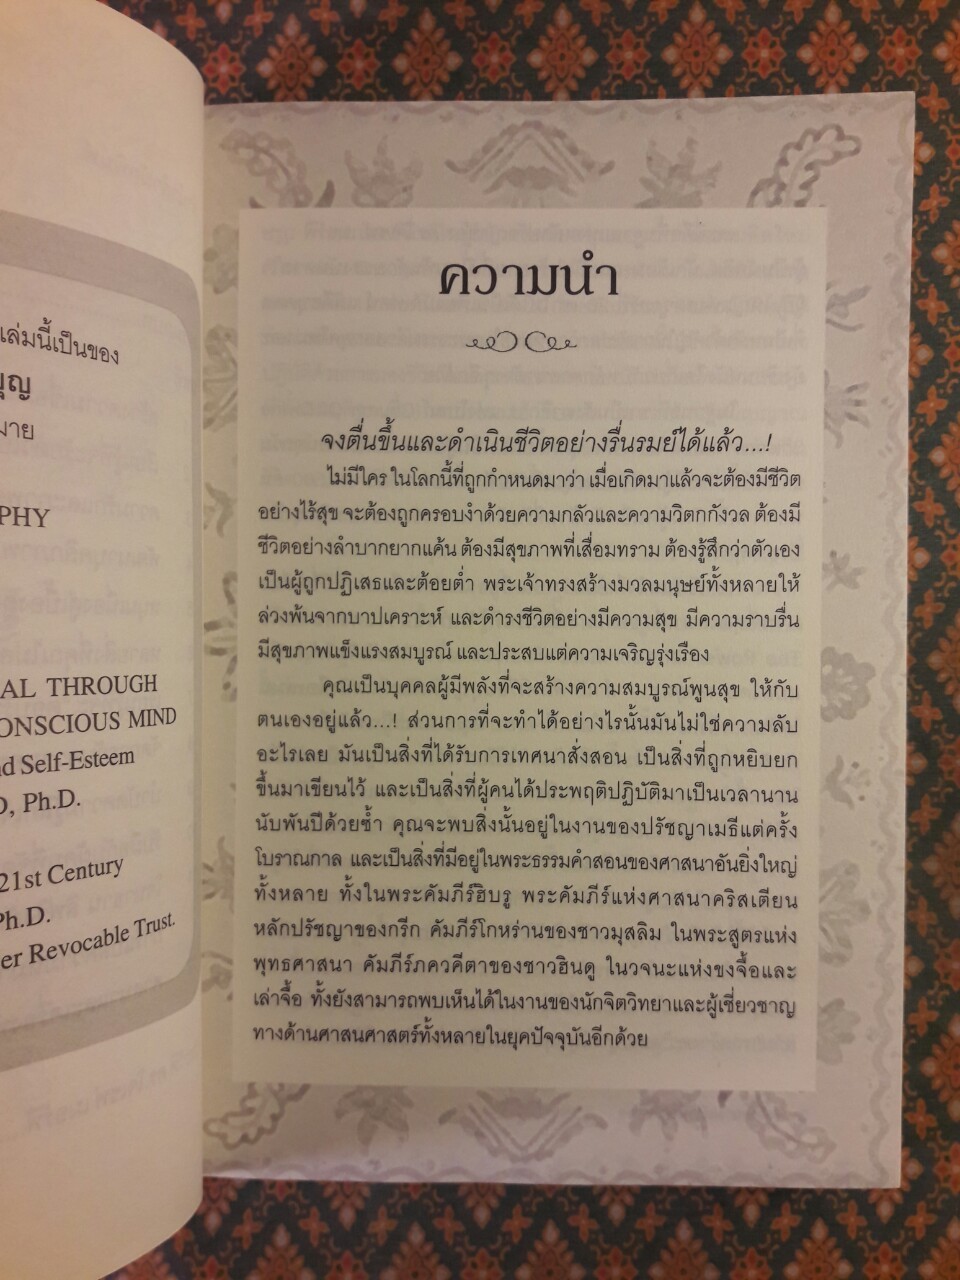 เล่มนี้เป็นของ
PHY
AL THROUGH
ONSCIOUS MIND
nd Self-Esteem
D, Ph.D.
21st Century
Ph.D.
er Revocable Trust.
ความนำ
จงตื่นขึ้นและดำเนินชีวิตอย่างรื่นรมย์ได้แล้ว...!
ไม่มีใคร ในโลกนี้ที่ถูกกำหนดมาว่า เมื่อเกิดมาแล้วจะต้องมีชีวิต
อย่างไร้สุข จะต้องถูกครอบงำด้วยความกลัวและความวิตกกังวล ต้องมี
ชีวิตอย่างลำบากยากแค้น ต้องมีสุขภาพที่เสื่อมทราม ต้องรู้สึกว่าตัวเอง
เป็นผู้ถูกปฏิเสธและต้อยต่ำ พระเจ้าทรงสร้างมวลมนุษย์ทั้งหลายให้
ล่วงพ้นจากบาปเคราะห์ และดำรงชีวิตอย่างมีความสุข มีความราบรื่น
มีสุขภาพแข็งแรงสมบูรณ์ และประสบแต่ความเจริญรุ่งเรือง
คุณเป็นบุคคลผู้มีพลังที่จะสร้างความสมบูรณ์พูนสุข ให้กับ
ตนเองอยู่แล้ว...! ส่วนการที่จะทำได้อย่างไรนั้นมันไม่ใช่ความลับ
อะไรเลย มันเป็นสิ่งที่ได้รับการเทศนาสั่งสอน เป็นสิ่งที่ถูกหยิบยก
ขึ้นมาเขียนไว้ และเป็นสิ่งที่ผู้คนได้ประพฤติปฏิบัติมาเป็นเวลานาน
นับพันปีด้วยซ้ำ คุณจะพบสิ่งนั้นอยู่ในงานของปรัชญาเมธีแต่ครั้ง
โบราณกาล และเป็นสิ่งที่มีอยู่ในพระธรรมคำสอนของศาสนาอันยิ่งใหญ่
ทั้งหลาย ทั้งในพระคัมภีร์ฮิบรู พระคัมภีร์แห่งศาสนาคริสเตียน
หลักปรัชญาของกรีก คัมภีร์โกหร่านของชาวมุสลิม ในพระสูตรแห่ง
พุทธศาสนา คัมภีร์ภควคีตาของชาวฮินดู ในวจนะแห่งขงจื้อและ
เล่าจื้อ ทั้งยังสามารถพบเห็นได้ในงานของนักจิตวิทยาและผู้เชี่ยวชาญ
ทางด้านศาสนศาสตร์ทั้งหลายในยุคปัจจุบันอีกด้วย